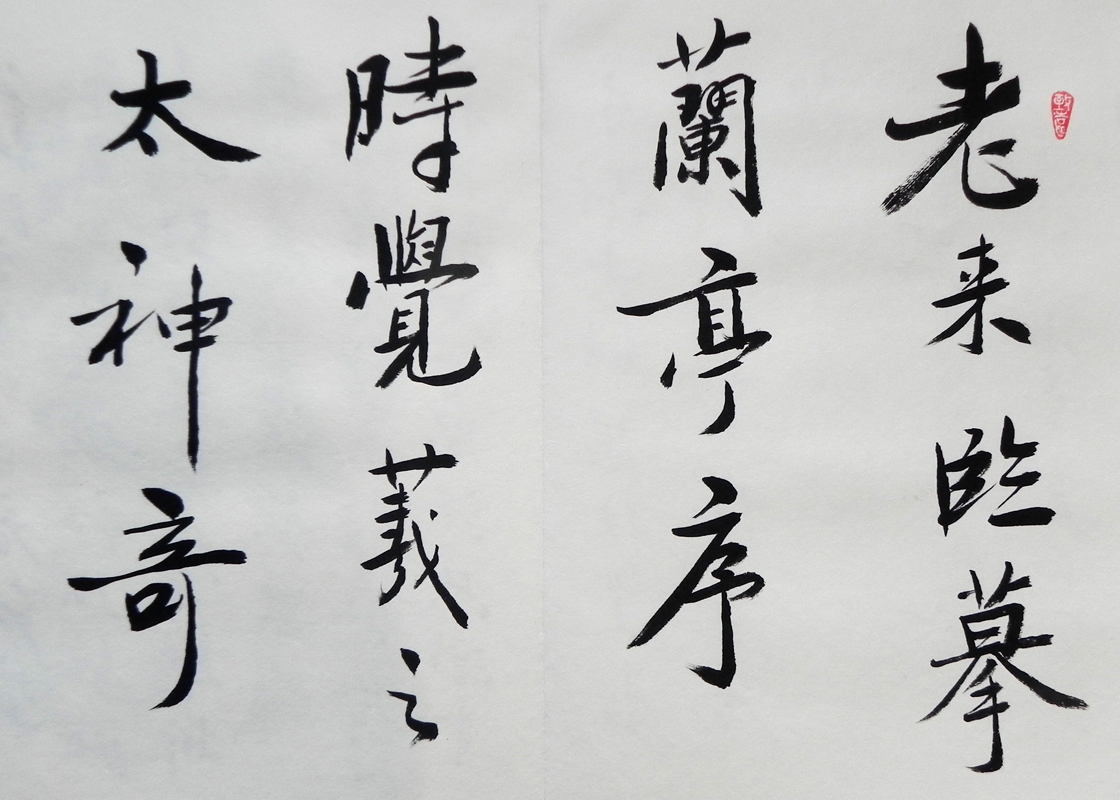 老来臨摹
蘭亭序
時覺羲之
太神奇